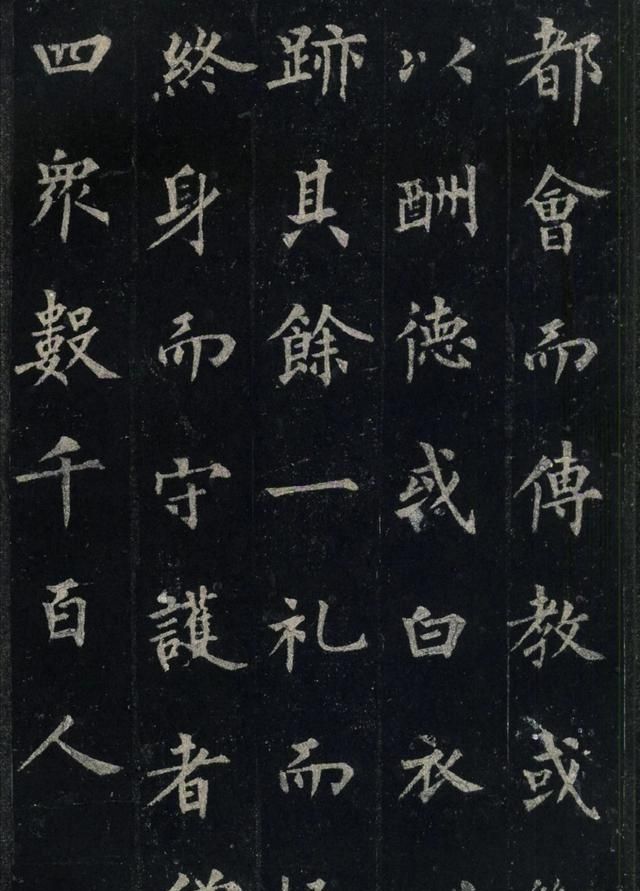 都會而傳教或
以酬德或白衣
跡其餘一礼而
終身而守護者
四眾數千百人